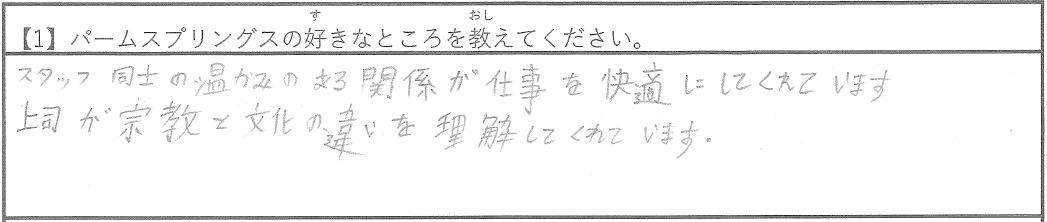 【1】パームスプリングスの好きなところを教えてください。
スタッフ同士の温かみのある関係が仕事を快適にしてくれています
上司が宗教と文化の違いを理解してくれています。